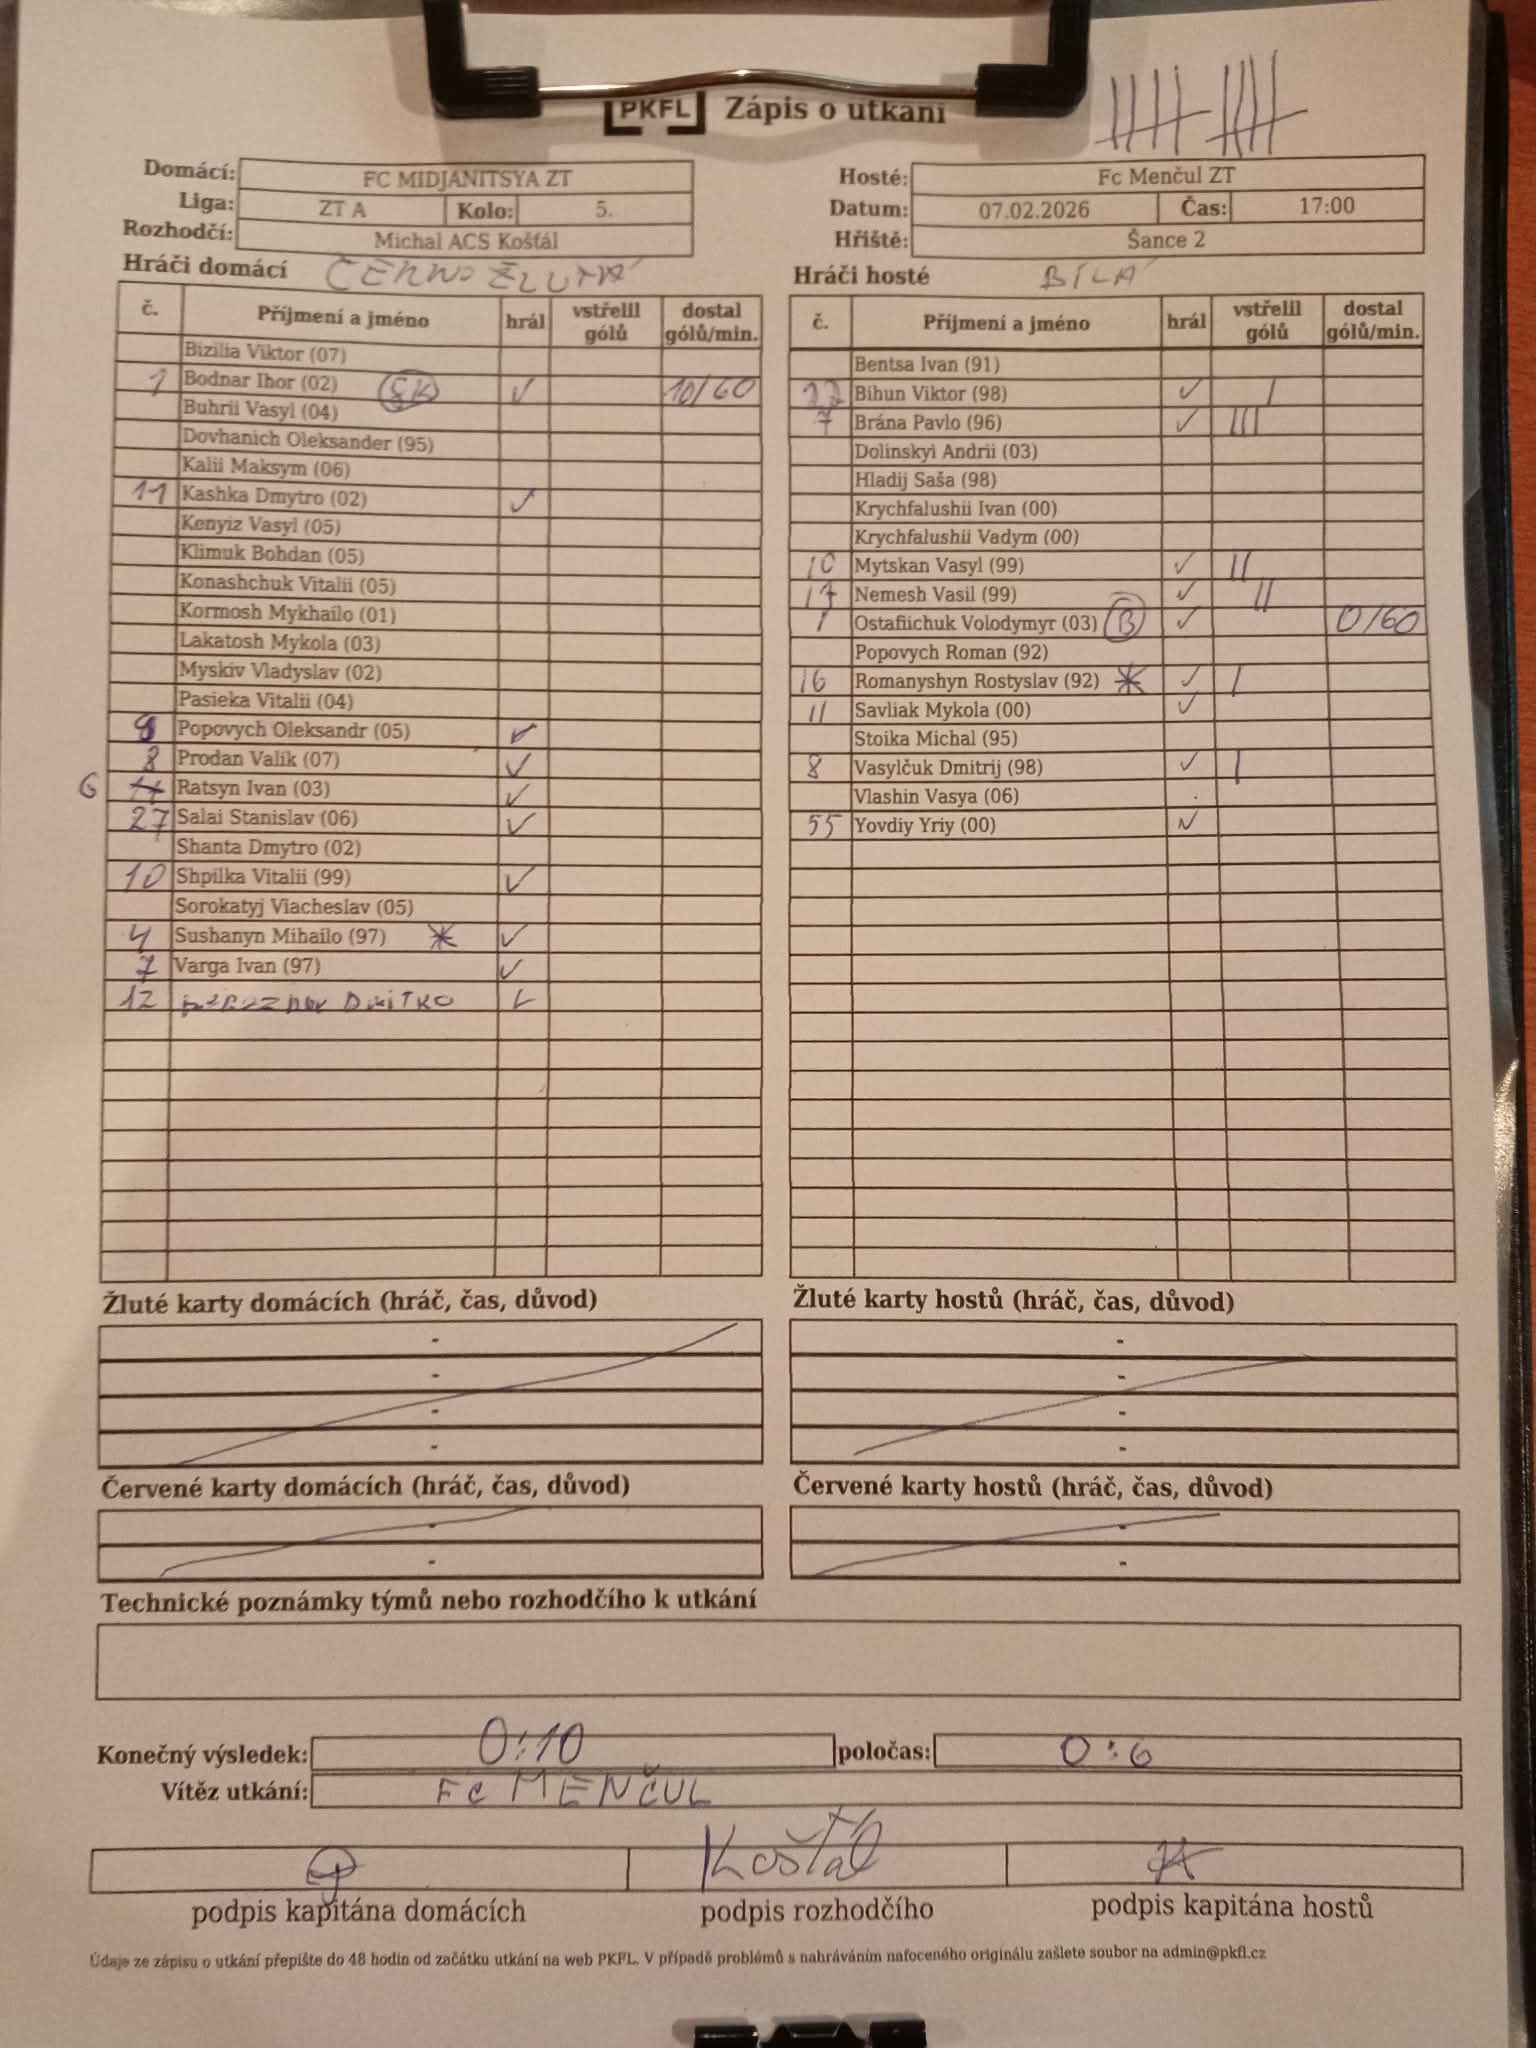 PKFL Zápis o utkání
Domácí: FC MIDJANITSYA ZT
Liga: ZT A Kolo: 5.
Rozhodčí: Michal ACS Košťál
Hosté: Fc Menčul ZT
Datum: 07.02.2026 Čas: 17:00
Hřiště: Šance 2
Hráči domácí ČERNO ŽLUTÁ
č. Příjmení a jméno hrál vstřelil gólů dostal gólů/min.
Bizilia Viktor (07)
1 Bodnar Ihor (02) GK ✓ 10/60
Buhrii Vasyl (04)
Dovhanich Oleksander (95)
Kalii Maksym (06)
11 Kashka Dmytro (02) ✓
Kenyiz Vasyl (05)
Klimuk Bohdan (05)
Konashchuk Vitalii (05)
Kormosh Mykhailo (01)
Lakatosh Mykola (03)
Myskiv Vladyslav (02)
Pasieka Vitalii (04)
Popovych Oleksandr (05) ✓
8 Prodan Valik (07) ✓
6 Ratsyn Ivan (03) ✓
27 Salai Stanislav (06) ✓
Shanta Dmytro (02)
10 Shpilka Vitalii (99) ✓
Sorokatyj Viacheslav (05)
4 Sushanyn Mihailo (97) * ✓
7 Varga Ivan (97) ✓
12 DMITKO ✓
Hráči hosté BÍLÁ
č. Příjmení a jméno hrál vstřelil gólů dostal gólů/min.
Bentsa Ivan (91)
22 Bihun Viktor (98) ✓ |
7 Brána Pavlo (96) ✓ |||
Dolinskyi Andrii (03)
Hladij Saša (98)
Krychfalushii Ivan (00)
Krychfalushii Vadym (00)
10 Mytskan Vasyl (99) ✓ ||
17 Nemesh Vasil (99) ✓ ||
1 Ostafiichuk Volodymyr (03) B ✓ 0/60
Popovych Roman (92)
16 Romanyshyn Rostyslav (92) * ✓ |
11 Savliak Mykola (00) ✓
Stoika Michal (95)
8 Vasylčuk Dmitrij (98) ✓ |
Vlashin Vasya (06)
55 Yovdiy Yriy (00) ✓
Žluté karty domácích (hráč, čas, důvod)
-
-
-
-
Žluté karty hostů (hráč, čas, důvod)
-
-
-
-
Červené karty domácích (hráč, čas, důvod)
-
-
Červené karty hostů (hráč, čas, důvod)
-
-
Technické poznámky týmů nebo rozhodčího k utkání
Konečný výsledek: 0:10 poločas: 0:6
Vítěz utkání: FC MENČUL
Košťál
podpis kapitána domácích podpis rozhodčího podpis kapitána hostů
Údaje ze zápisu o utkání přepište do 48 hodin od začátku utkání na web PKFL. V případě problémů s nahráváním nafoceného originálu zašlete soubor na admin@pkfl.cz